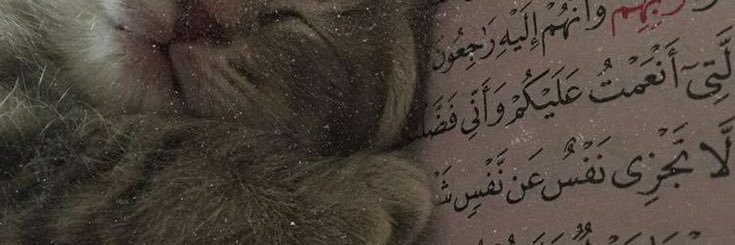 رَبِّهِمْ وَأَنَّهُمْ إِلَيْهِ رَٰجِعُونَ
لَّتِىٓ أَنْعَمْتُ عَلَيْكُمْ وَأَنِّى فَضَّلـ
لَّا تَجْزِى نَفْسٌ عَن نَّفْسٍ شَـ